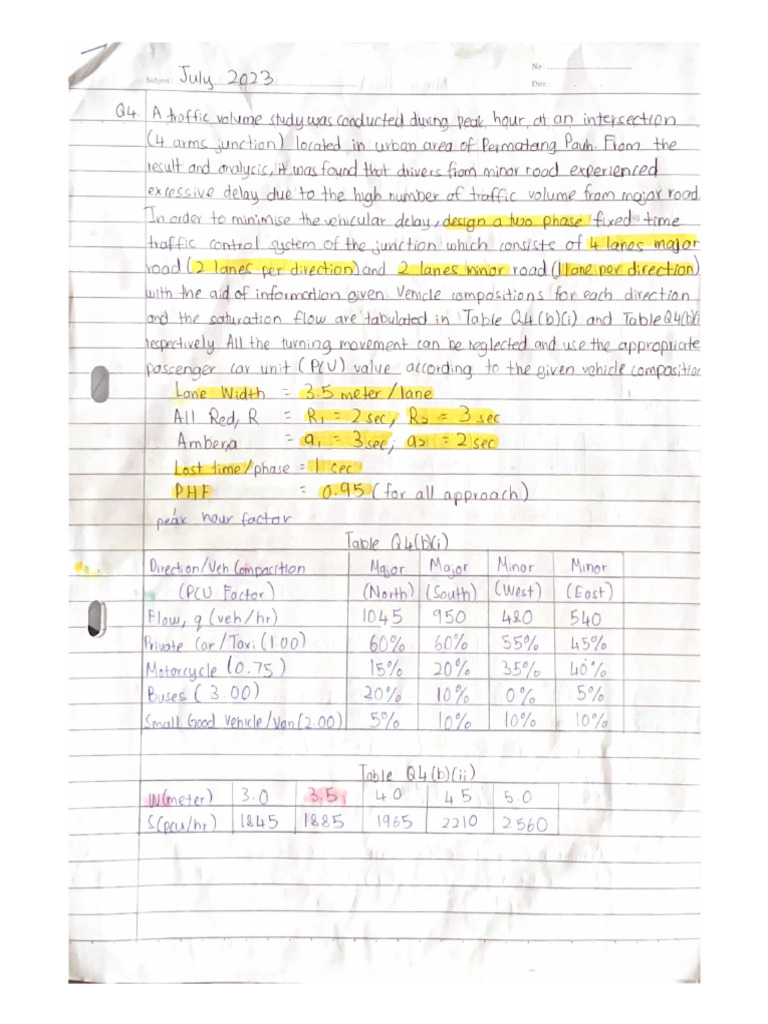 No
Subject: July 2023
Date:
Q4 A traffic volume study was conducted during peak hour, at an intersection
(4 arms junction) located in urban area of Permatang Pauh. From the
result and analysis, it was found that drivers from minor road experienced
excessive delay due to the high number of traffic volume from major road.
In order to minimise the vehicular delay, design a two phase fixed time
traffic control system of the junction which consists of 4 lanes major
road (2 lanes per direction) and 2 lanes minor road (1 lane per direction)
with the aid of information given. Vehicle compositions for each direction
and the saturation flow are tabulated in Table Q4(b)(i) and Table Q4(b)(i
respectively. All the turning movement can be neglected and use the appropriate
passenger car unit (PCU) value according to the given vehicle composition
Lane Width = 3.5 meter/lane
All Red, R = R1 = 2 sec, R2 = 3 sec
Amber,a = a1 = 3 sec; a2 = 2 sec
Lost time/phase = 1 cec
PHF = 0.95 (for all approach)
peak hour factor
Table Q4(b)(i)
Direction/Veh Composition Major Major Minor Minor
(PCU Factor) (North) (South) (West) (East)
Flow, q (veh/hr) 1045 950 480 540
Private Car/Taxi (1.00) 60% 60% 55% 45%
Motorcycle (0.75) 15% 20% 35% 40%
Buses (3.00) 20% 10% 0% 5%
Small Good Vehicle/Van (2.00) 5% 10% 10% 10%
Table Q4(b)(ii)
W(meter) 3.0 3.5 4.0 4.5 5.0
S(pcu/hr) 1845 1885 1965 2210 2560